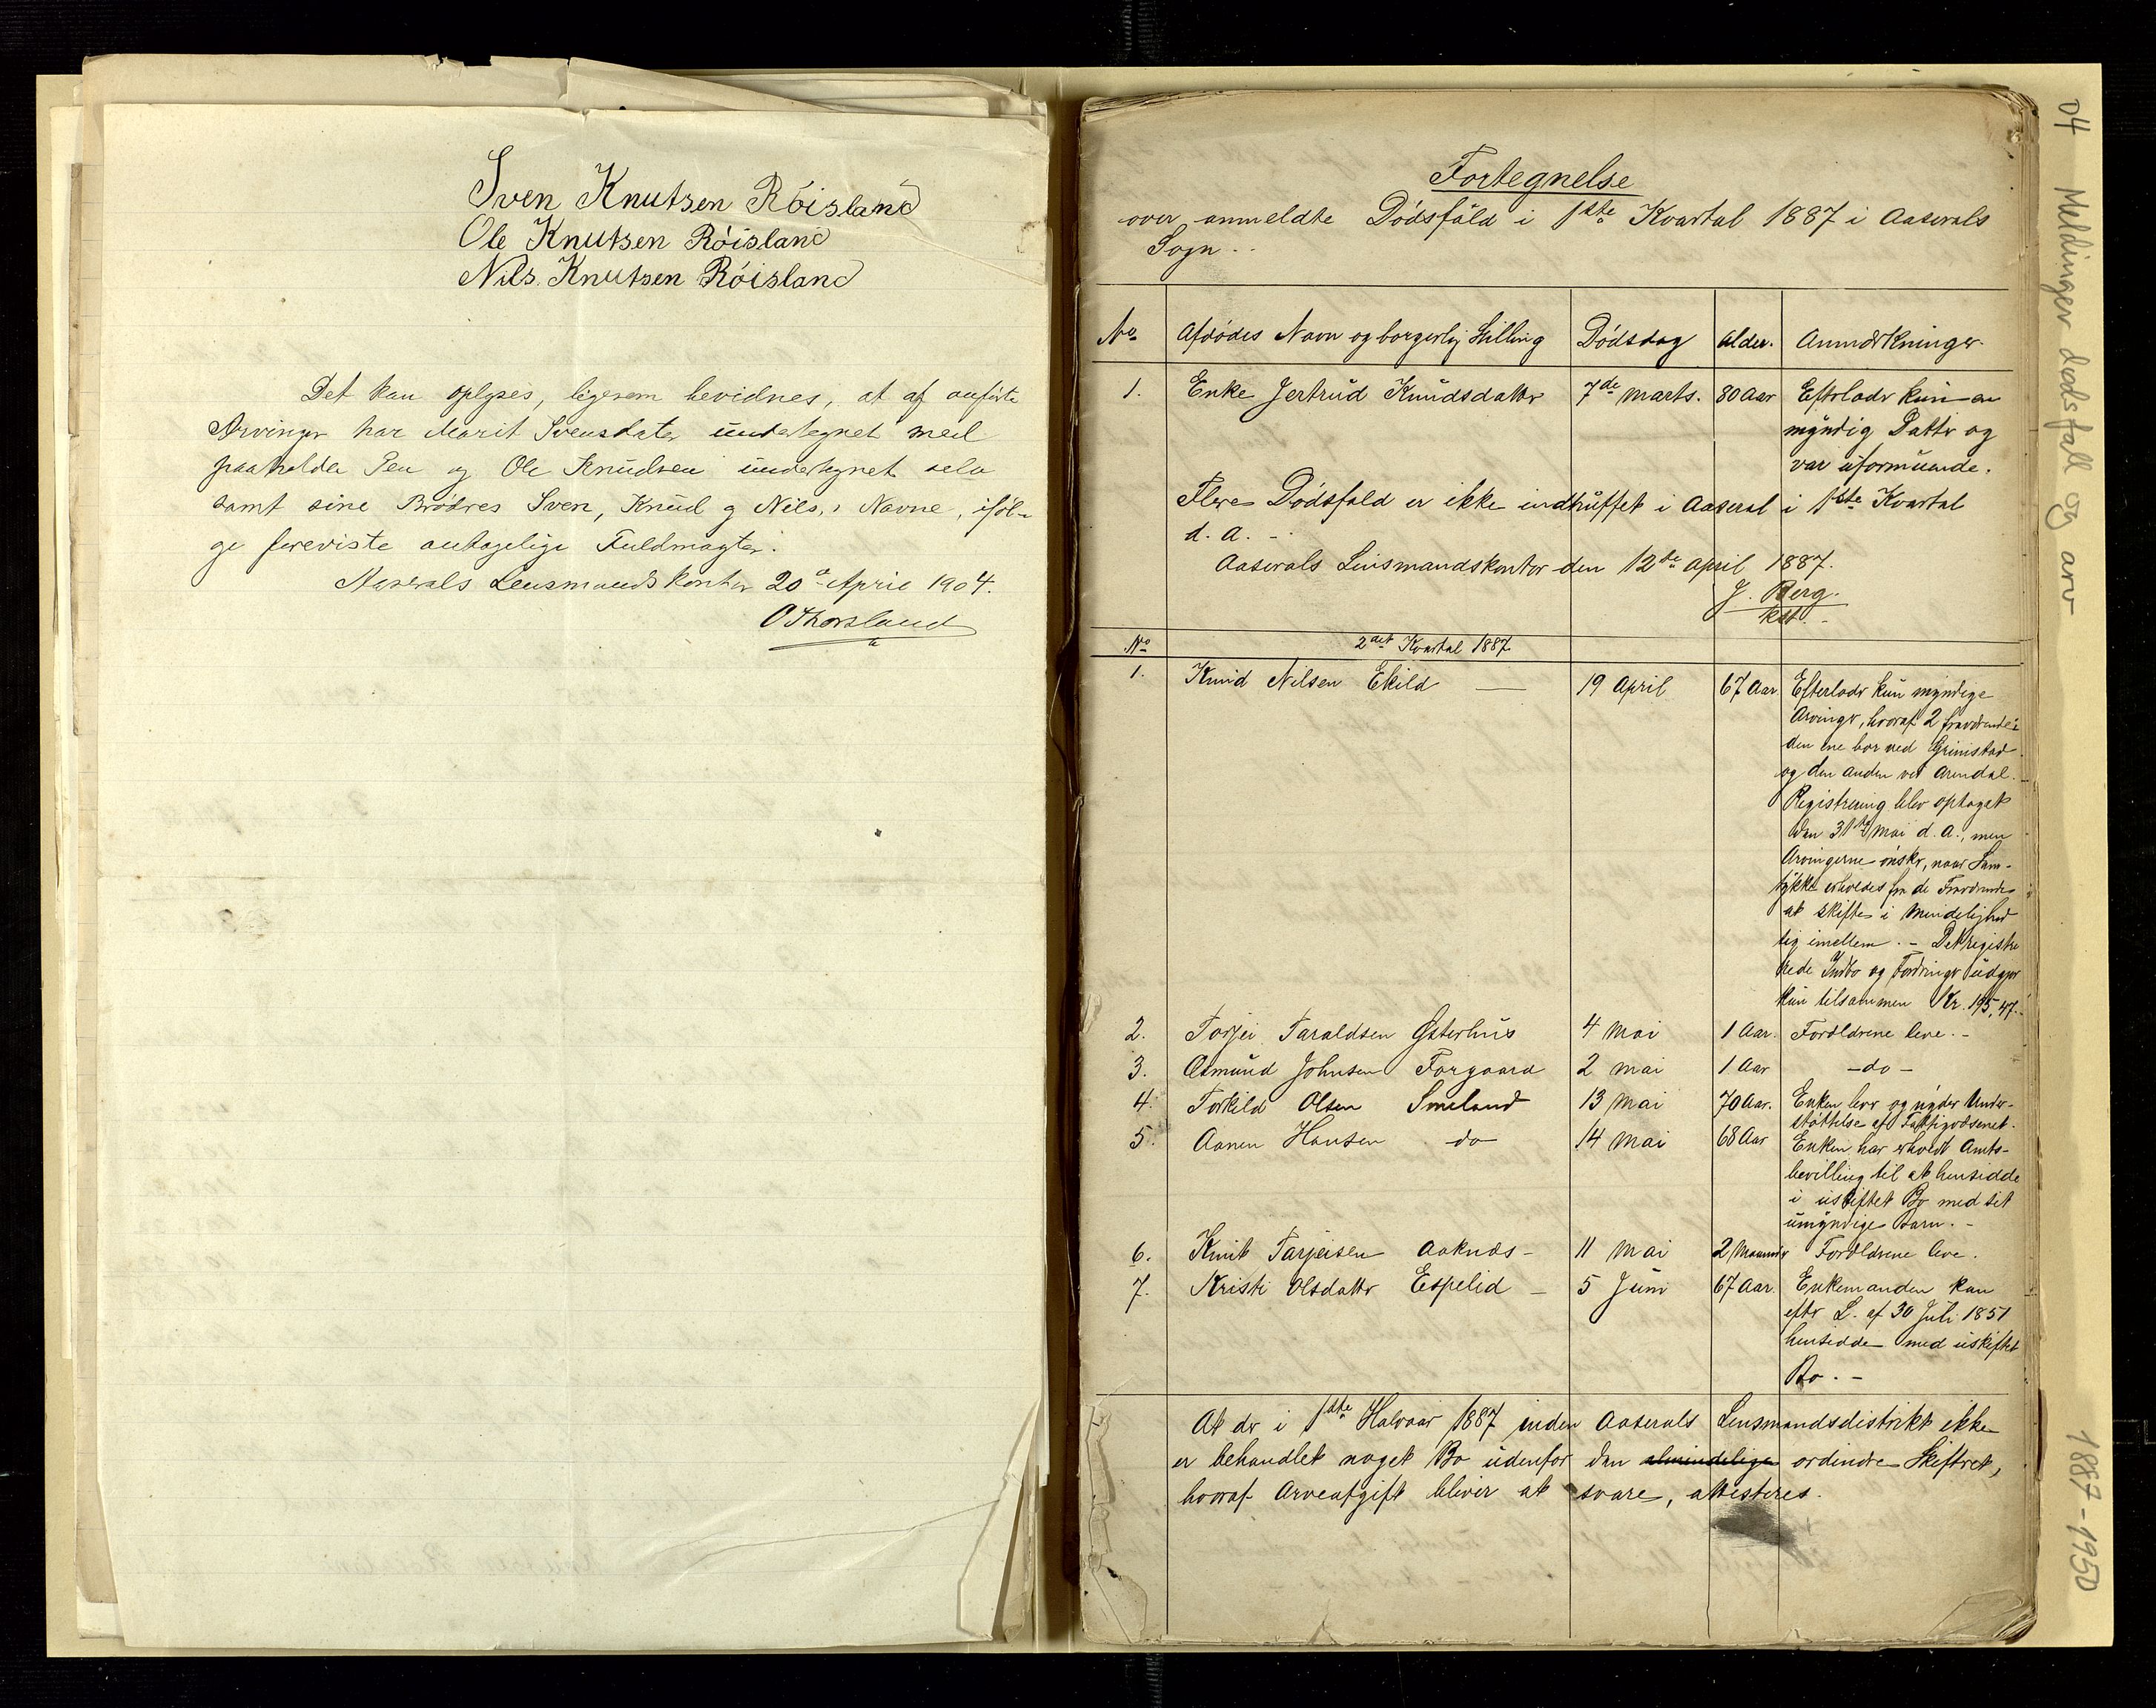 Sven Knutsen Röisland
Ole Knutsen Röisland
Nils. Knutsen Röisland
Det kan oplyses, ligesom bevidnes, at af anförte
Arvinger har Marit Svensdater undertegnet med
paaholden Pen og Ole Knudsen undertegnet selv
samt sine Brödres Sven, Knud og Nils, s Navne, iföl-
ge foreviste antagelige Fuldmagter.
Aaserals Lensmandskontor 20de April 1904.
O Thorsland
Fortegnelse
over anmeldte Dödsfald i 1ste Kvartal 1887 i Aaserals
Sogn..
No Afdödes Navn og borgerlig Stilling Dödsdag Alder. Anmærkninger.
1. Enke Jertrud Knudsdatter 7de Marts. 80 Aar Efterlader kun en
myndig Datter og
var uformuende.
Flere Dödsfald er ikke indtruffet i Aaseral i 1ste Kvartal
d. A. -
Aaserals Lensmandskontor den 12te April 1887.
J. Berg.
kst.
No 2det Kvartal 1887
1. Knud Nilsen Ekild — 19 April 67 Aar Efterlader kun myndige
Arvinger, hvoraf 2 fraværende:
den ene bor ved Grimstad
og den anden ved Arendal.
Registrering blev optaget
den 31te Mai d. A., men
Arvingerne önsker, naar Sam-
tykke erholdes fra de Fraværende
at skifte i Mindelighed
sig imellem. - Det registre
rede Indbo og Fordringer udgjør
kun tilsammen Kr. 195,47.
2. Torjei Taraldsen Østerhus 4 Mai 1 Aar. Forældrene leve. -
3. Osmund Johnsen Forgaard 2 Mai 1 Aar -do-
4. Torkild Olsen Smeland 13 Mai 70 Aar. Enken lever og nyder Under-
støttelse af Fattigvæsenet.
5. Aanen Hansen do 14 Mai 68 Aar Enken har erholdt Amts-
bevilling til at hensidde
i uskiftet Bo med sit
umyndige Barn. -
6. Knut Tarjeisen Aaknes - 11 Mai 2 Maaneder Forældrene leve.
7. Kristi Olsdatter Espelid - 5 Juni 67 Aar. Enkemanden kan
efter L. af 30 Juli 1851
hensidde med uskiftet
Bo. -
At der i 1ste Halvaar 1887 inden Aaserals Lensmandsdistrikt ikke
er behandlet noget Bo udenfor den almindelige ordinære Skifteret,
hvoraf Arveafgift bliver at svare, attesteres.
04 Meldinger dødsfall og arv 1887-1950